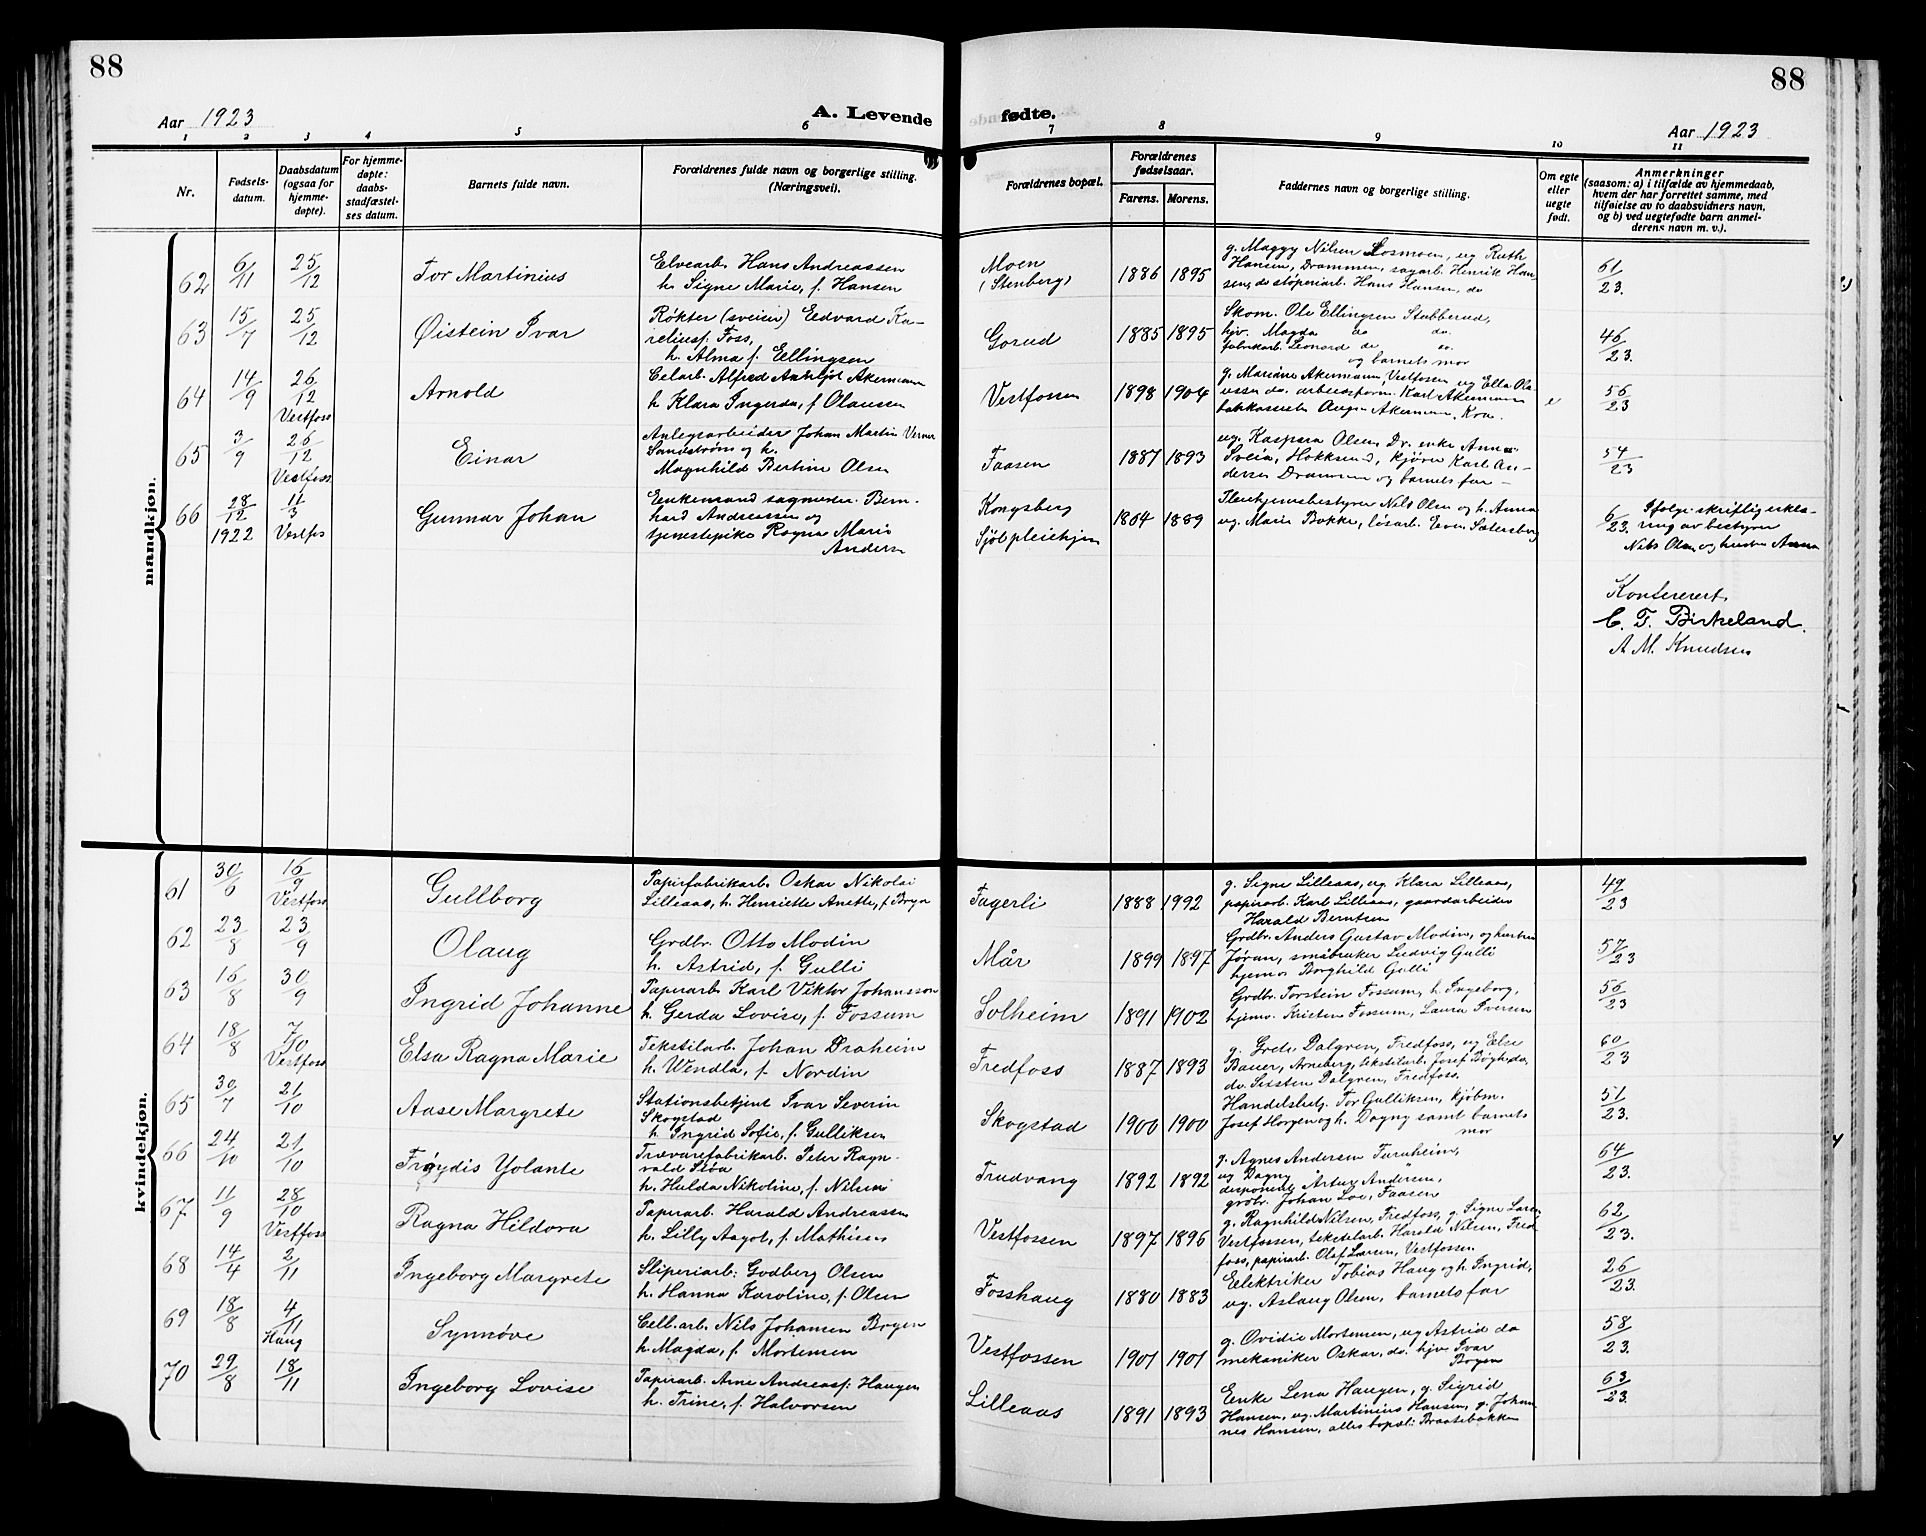 88
Aar 1923
A. Levende
1 2 3 4 5 6
Nr.
Fødsels-
datum.
Daabsdatum
(ogsaa for
hjemme-
døpte).
For hjemme-
døpte:
daabs-
stadfæstel-
ses datum.
Barnets fulde navn.
Forældrenes fulde navn og borgerlige stilling.
(Næringsvei).
88
fødte.
Aar 1923
7 8 9 10 11
Forældrenes bopæl.
Forældrenes
fødselsaar.
Farens. Morens.
Faddernes navn og borgerlige stilling.
Om egte
eller
uegte
født.
Anmerkninger
(saasom: a) i tilfælde av hjemmedaab,
hvem der har forrettet samme, med
tilføielse av to daabsvidners navn,
og b) ved uegtefødte barn anmel-
derens navn m. v.).
mandkjøn.
62 6/11 25/12 Tor Martinius
Elvearb. Hans Andreassen
h. Signe Marie, f. Hansen
Moen
(Stenberg)
1886 1895
g. Maggy Nilsen Losmoen, ug Ruth
Hansen, Drammen, sagarb. Henrik Han-
sen, do støperiarb. Hans Hansen, do
61/23.
63 15/7 25/12 Øistein Ivar
Røkter (sveiser) Edvard Ka-
reliusf. Foss,
h. Alma f. Ellingsen
Gorud
1885 1895
Skom. Ole Ellingsen Stubberud,
hjv. Magda do do.
fabrikarb. Leonard do do.
og barnets mor
46/23.
64 14/9 26/12 Vestfoss Arnold
Celarb. Alfred Ankljøt Akermann
h Klara Ingerda, f Olausen
Vestfossen
1898 1904
g. Mariane Akermann, Vestfossen ug Ella Ola
ussen do. arbeidsform. Karl Akermann
Akermann, Kra.
e
56/23
65 3/9 26/12 Vestfoss Einar
Anlegsarbeider Johan Martin Verner
Sandstrøm og h.
Magnhild Bertine Olsen
Faasen
1887 1893
ug. Kaspara Olsen, Dr. enke Anna
Sveia, Hokksund, kjører Karl An-
dersen Drammen og barnets far -
54/23
66 28/12 1922 11/3 Vestfos Gunnar Johan
Enkemand sagmester Bern-
hard Andreassen og
tjenestepike Ragna Marie
Andersen
Kongsberg
Sjøl pleiehjem
1864 1889
Pleiehjemsbestyrer Nils Olsen og h. Anna
ug. Marie Bakke, løsarb. Even Sætersberg
6/23.
Ifølge skriftlig erklæ-
ring av bestyrer
Nils Olsen og hustru Anna
Konfererert.
C. F. Birkeland.
A M. Knudsen
kvindekjøn.
61 30/6 16/9 Vestfoss Gullborg
Papirfabrikarb. Oskar Nikolai
Lilleaas, h. Henriette Anette, f. Bryn
Fagerli
1888 1992
g. Signe Lilleaas, ug. Klara Lilleaas,
papirarb. Karl Lilleaas, gaardarbeider
Harald Berntsen
49/23
62 23/8 23/9 Olaug
Grdbr. Otto Modin
h. Astrid, f. Gulli
Mår
1899 1897
Grdbr. Anders Gustav Modin, og hustru
Jøran, småbruker Ludvig Gulli
hjemv Borghild Gulli
57/23
63 16/8 30/9 Ingrid Johanne
Papirarb. Karl Viktor Johansson
h. Gerda Lovise, f. Fossum
Solheim
1891 1902
Grdbr. Torstein Fossum, h. Ingeborg,
hjemv. Kristen Fossum, Laura Iversen
56/23
64 18/8 7/10 Vestfoss Elsa Ragna Marie
Tekstilarb. Johan Draheim
h. Wendla, f. Nordin
Fredfoss
1887 1893
g. Grete Dalgren, Fredfoss, ug Else
Bauer, Arneberg, tekstilarb. Josef Bøgh do,
do. Sixsten Dalgren, Fredfoss.
60/23
65 30/7 21/10 Aase Margrete
Stationsbetjent Ivar Severin
Skogstad
h. Ingrid Sofie, f. Gulliksen
Skogstad
1900 1900
Handelsbetj. Tor Gulliksen, kjøbm.
Josef Horgen og h. Dagny samt barnets
mor
51/23.
66 24/10 21/10 Frøydis Yolante
Trævarefabrikarb. Peter Ragn-
vald Stöa
h. Hulda Nikoline, f. Nilsen
Trudvang
1892 1892
g. Agnes Andersen Furuheim,
ug Dagny "
disponent Artur Andersen,
grdbr. Johan Loe, Faasen
64/23.
67 11/9 28/10 Vestfoss Ragna Hildora
Papirarb. Harald Andreassen
h. Lilly Aagot, f. Mathisen
Vestfossen
1897 1896
g. Ragnhild Nilsen, Fredfoss, g. Signe Larsen
Vestfossen, tekstilarb. Harald Nilsen, Fred-
foss, papirarb. Olaf Larsen, Vestfossen
62/23.
68 14/4 2/11 Ingeborg Margrete
Sliperiarb: Godberg Olsen
h. Hanna Karoline, f. Olsen
Fosshaug
1880 1883
Elektriker Tobias Haug og h. Ingrid,
ug. Aslaug Olsen, barnets far
26/23.
69 18/8 4/11 Haug Synnøve
Cell.arb. Nils Johansen Bryen
h. Magda, f. Mortensen
Vestfossen
1901 1901
g. Ovidie Mortensen, ug Astrid do
mekaniker Oskar, do. hjv. Ivar
Bryen
58/23.
70 29/8 18/11 Ingeborg Lovise
Papirarb. Arne Andreasf. Haugen
h. Trine, f. Halvorsen
Lilleaas
1891 1893
Enke Lena Haugen, g. Sigrid
Hansen, ug. Martinius Hansen, g. Johan
nes Hansen, alles bopæl: Braatebakken
63/23.